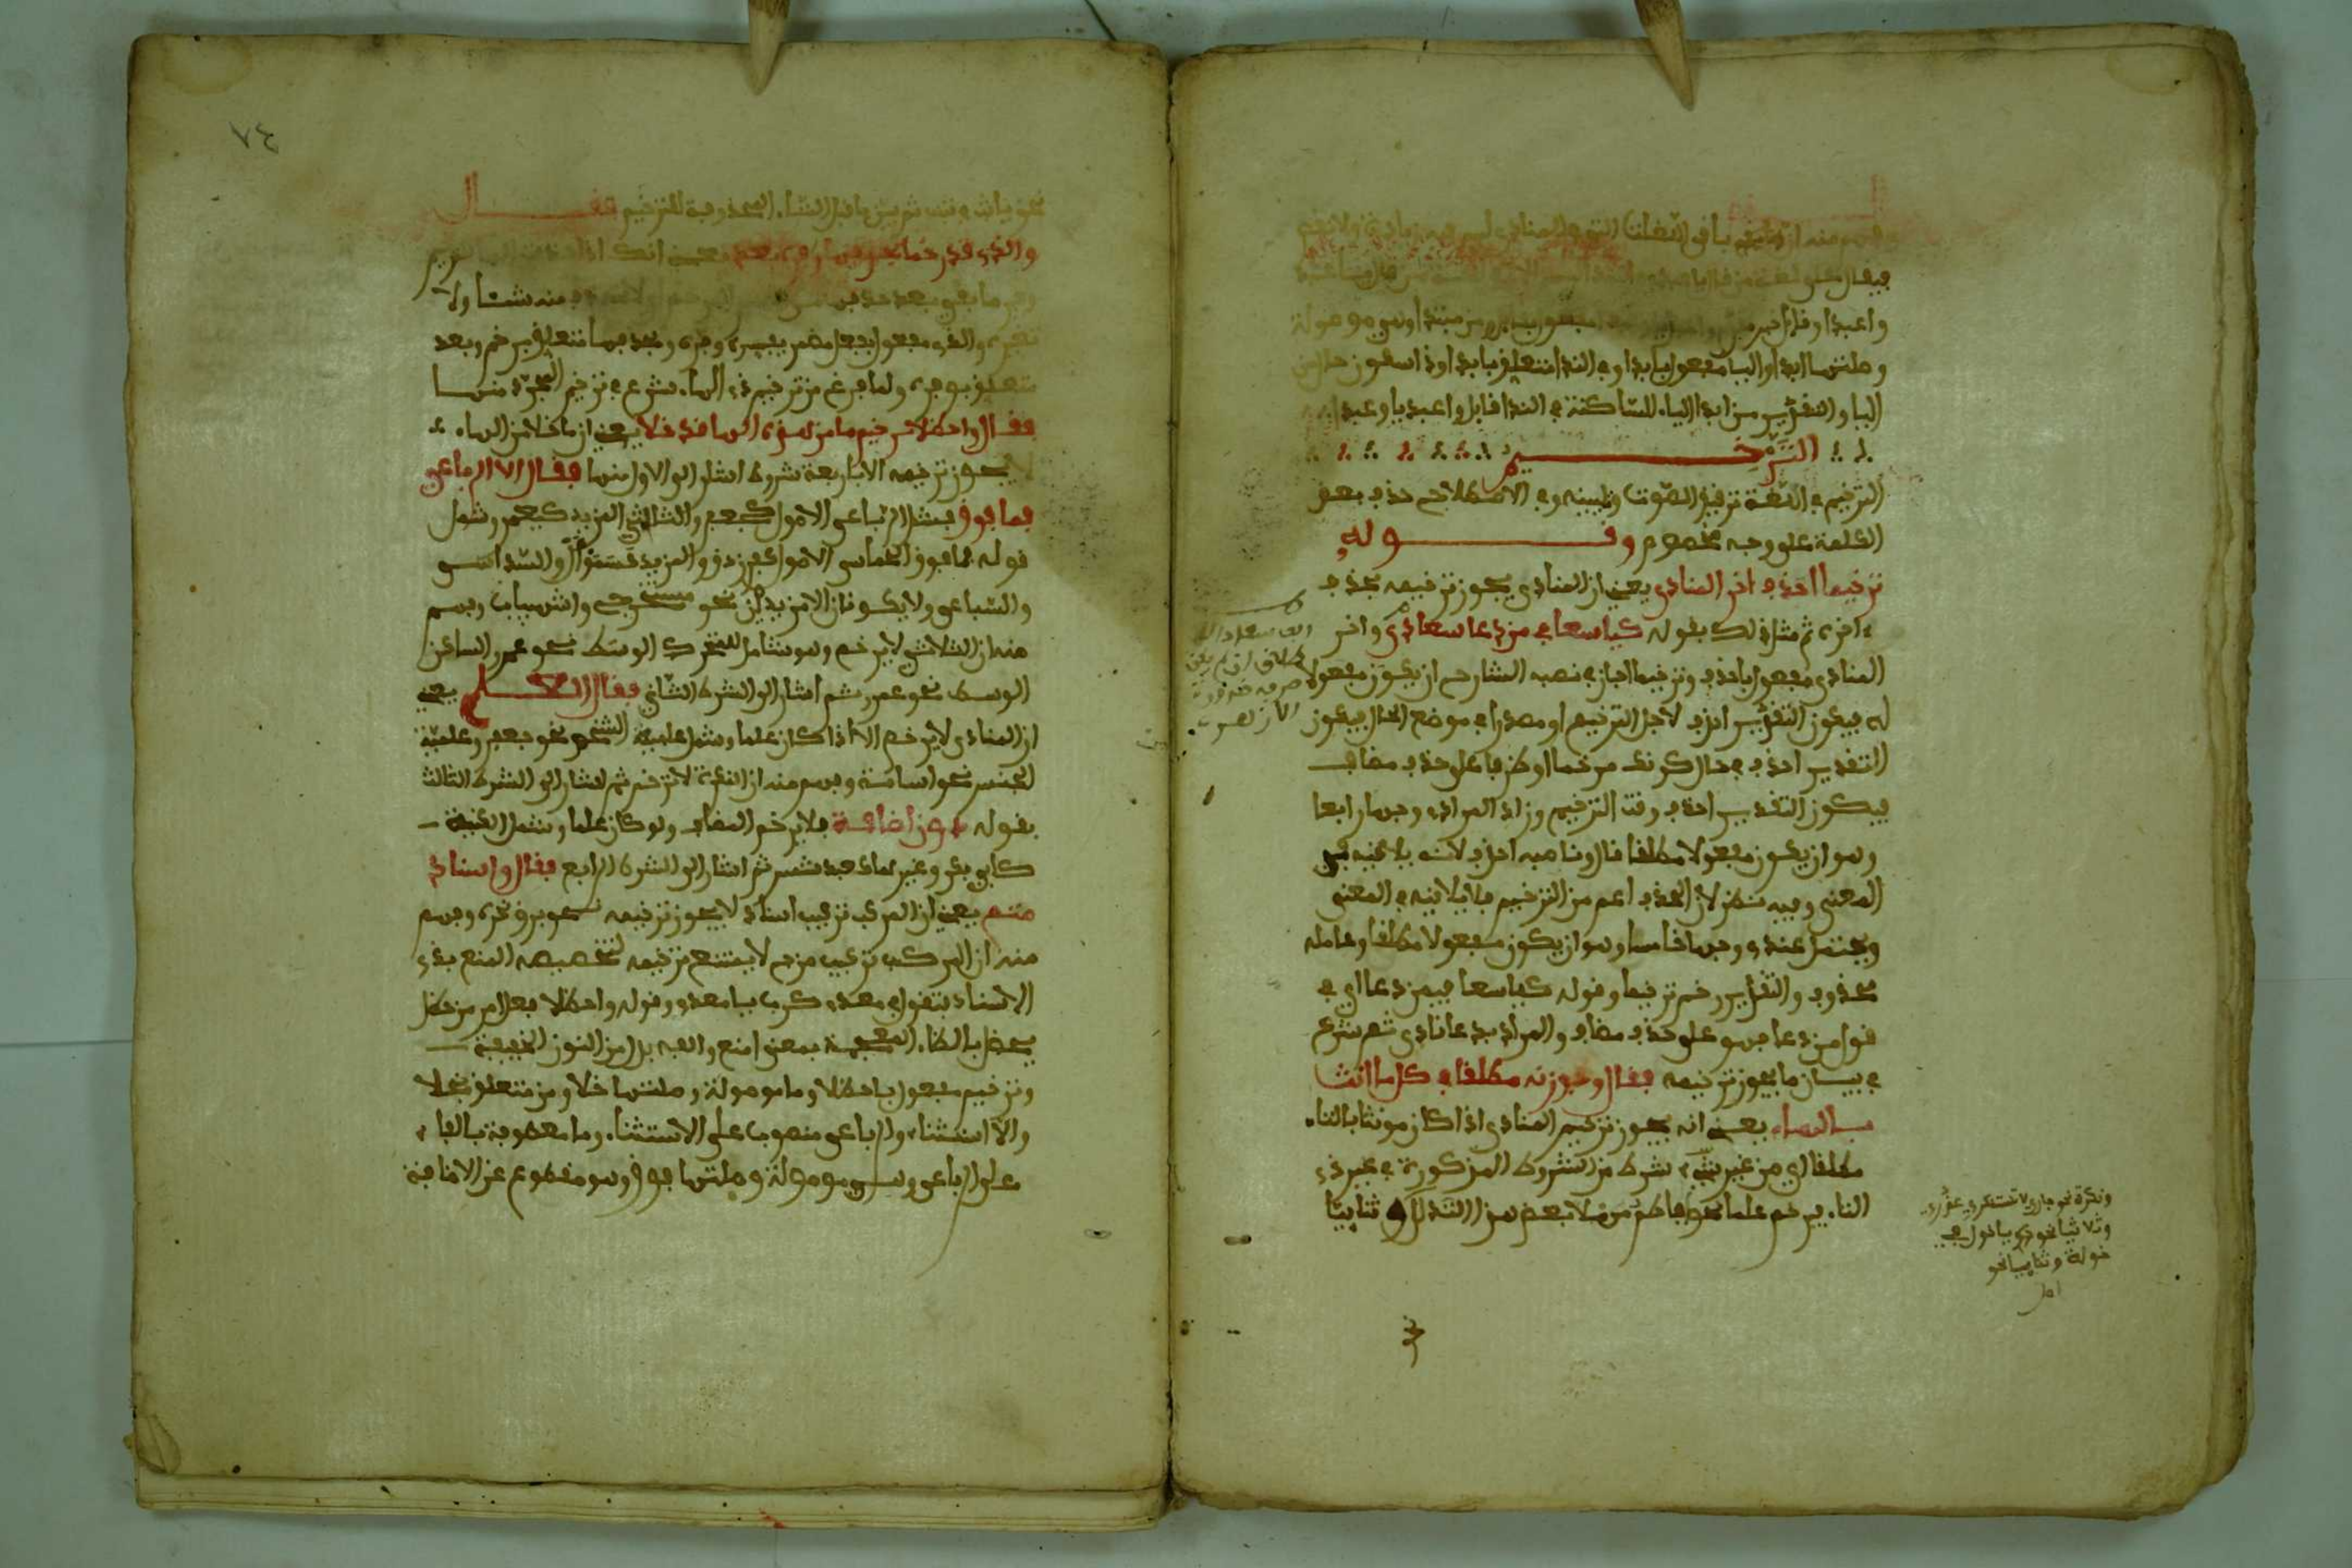 وفهم منه ان
فيقال على لغة من قال يا عبد
واعبدا وقائل خبر مقدم
وصلتها ابدا واليا مفعول بابدا وفي الندا متعلق بابدا وذا سكون حال من
اليا والتقدير من ابدا الياء الساكنة في الندا قايل واعبديا وعبدا
الترخيم
الترخيم في اللغة ترقيق الصوت وتليينه وفي الاصطلاح حذف بعض
الكلمة على وجه مخصوص وقوله
ترخيما احذف اخر المنادى يعني ان المنادى يجوز ترخيمه بحذف
اخره ثم مثل ذلك بقوله كيا سعا في من دعا سعادى واخر
المنادى مفعول باحذف وترخيما اجاز في نصبه الشارح ان يكون مفعولا
له فيكون التقدير احذف لاجل الترخيم او مصدرا في موضع الحال فيكون
التقدير احذف في حال كونك مرخما او ظرفا على حذف مضاف
فيكون التقدير احذف وقت الترخيم وزاد المرادي وجها رابعا
وهو ان يكون مفعولا مطلقا قال وناصبه احذف لانه يلاقيه في
المعنى وفيه نظر لان الحذف اعم من الترخيم فلا يلاقيه في المعنى
ويحتمل عندي وجها خامسا وهو ان يكون مفعولا مطلقا وعامله
محذوف والتقدير رخم ترخيما وقوله كيا سعا فيمن دعا اي في
قول من دعا فهو على حذف مضاف والمراد بدعا نادى ثم شرع
في بيان ما يجوز ترخيمه فقال وجوزنه مطلقا في كل ما انث
بالهاء يعني انه يجوز ترخيم المنادى اذا كان مونثا بالتاء
مطلقا اي من غير شرط من الشروط المذكورة في غير ذي
التاء فيرخم علما نحو افاطم مهلا بعض هذا التدلل وثنائيا
ونكرة نحو جاري لا تستنكري عذيري
وثلاثيا نحو يا خول في
خولة وثنائيا نحو
٧٤
نحو ياثب في ثبة ثم بين ما قبل التاء المحذوفة للترخيم فقال
والذي قد رخما بحذفها وفره بعد يعني انك اذا
وفر ما بقي بعد حذفها منه شيئا ولا
تغيره والذي مفعول بفعل مضمر يفسره وفره وبحذفها متعلق برخم وبعد
متعلق بوفره ولما فرغ من ترخيم ذي الهاء شرع في ترخيم المجرد منها
فقال واحظلا ترخيم ما من هذه الها قد خلا يعني ان ما خلا من الهاء
لا يجوز ترخيمه الا باربعة شروط اشار الى الاول منها فقال الا الرباعي
فما فوق فيشمل الرباعي الاصول كجعفر والثلاثي المزيد كيعمر وشمل
قوله فما فوق الخماسي الاصول كفرزدق والمزيد والسداسي
والسباعي ولا يكونان الا مزيدين نحو مستخرج واشهيباب وفهم
منه ان الثلاثي لا يرخم وهو شامل للمتحرك الوسط نحو عمر والساكن
الوسط نحو عمرو ثم اشار الى الشرط الثاني فقال العلم يعني
ان المنادى لا يرخم الا اذا كان علما وشمل علمية الشخص نحو جعفر وعلمية
الجنس نحو اسامة وفهم منه ان النكرة لا ترخم ثم اشار الى الشرط الثالث
بقوله دون اضافة فلا يرخم المضاف ولو كان علما وشمل الكنية
كابي بكر وغيرها كعبد شمس ثم اشار الى الشرط الرابع فقال واسناد
متم يعني ان المركب تركيب اسناد لا يجوز ترخيمه نحو برق نحره وفهم
منه ان المركب تركيب مزج لا يمتنع ترخيمه لتخصيصه المنع بذي
الاسناد فتقول في معدي كرب يا معدي وقوله واحظلا فعل امر من حظل
يحظل بالظاء المعجمة بمعنى امنع والفه بدل من النون الخفيفة
وترخيم مفعول باحظلا وما موصولة وصلتها خلا ومن متعلق بخلا
والا استثناء والرباعي منصوب على الاستثناء وما معطوفة بالفاء
على الرباعي وهي موصولة وصلتها فوق وهو مقطوع عن الاضافة